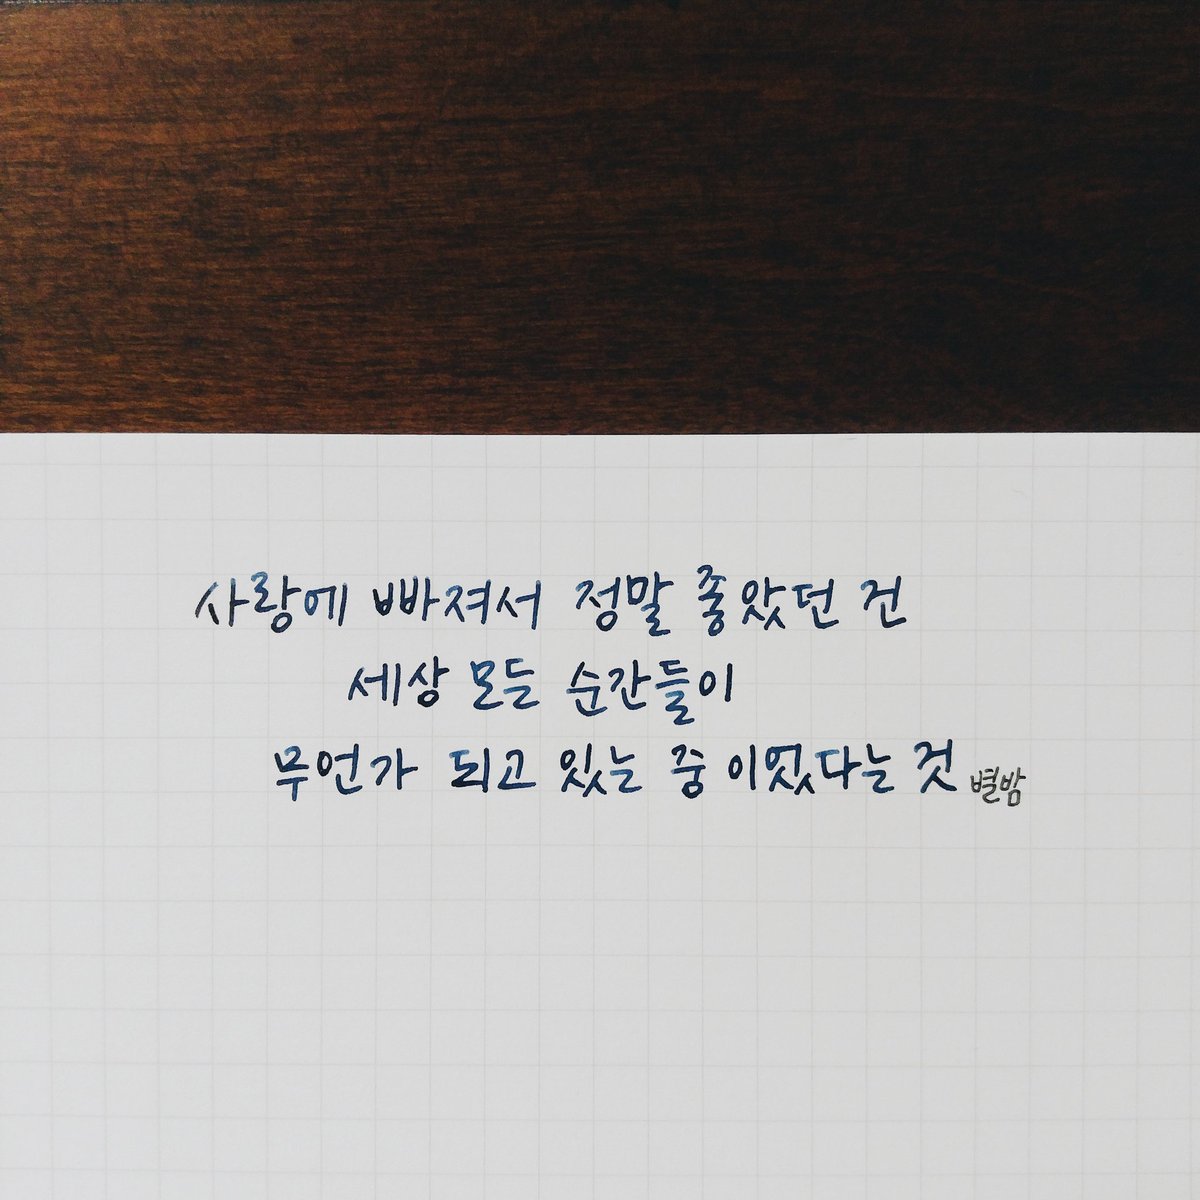 사랑에 빠져서 정말 좋았던 건
세상 모든 순간들이
무언가 되고 있는 중이었다는 것 별밤